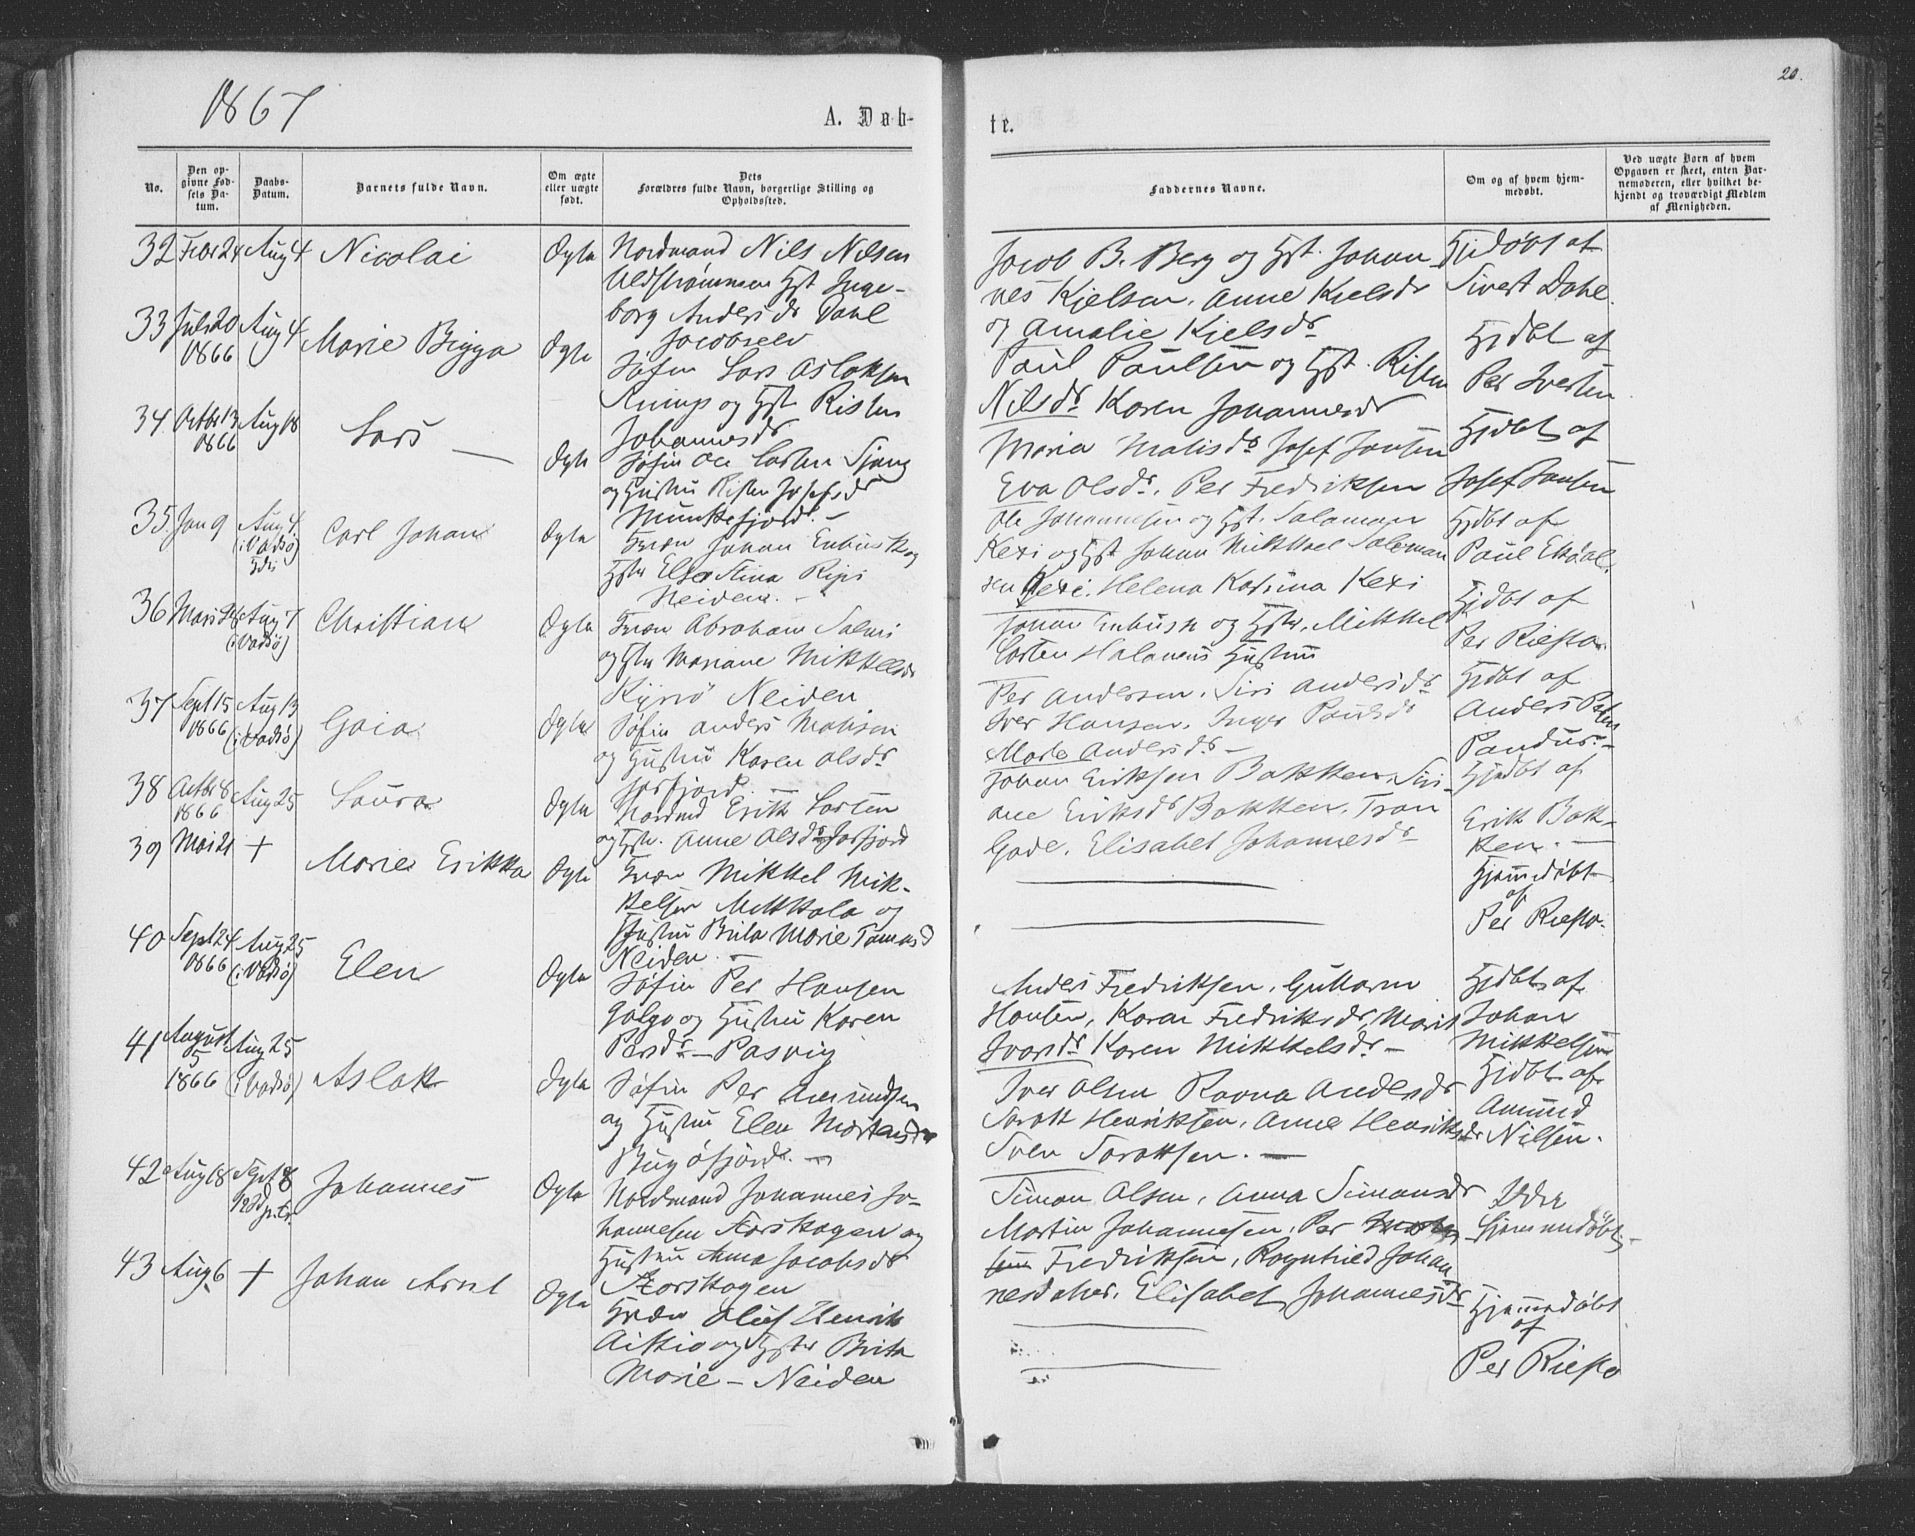 1867
20.
A. Døb-
te.
No.
Den op-
givne Fød-
sels Da-
tum.
Daabs-
Datum.
Barnets fulde Navn.
Om ægte
eller uægte
født.
Dets
Forældres fulde Navn, borgerlige Stilling og
Opholdssted.
Faddernes Navne.
Om og af hvem hjem-
medøbt.
Ved uægte Børn af hvem
Opgaven er skeet, enten Bar-
nemoderen, eller hvilket be-
kjendt og troværdigt Medlem
af Menigheden.
32 Febr 24 Aug 4 Nicolai Ægte
Nordmand Nils Nilsen
Hst Inge-
borg Andersdr Dahl
Jacobselv
Jacob B. Berg og Hst. Johan-
nes Kjelsen. Anne Kjelsdr
og Amalie Kjelsdr
Hjdøbt af
Sivert Dahl.
33 Juli 20 Aug 4 Marie Bigga Ægte
1866
Søfin Lars Aslaksen
og Hst Risten
Johannesdr
Paul Paulsen og Hst. Risten
Nilsdr Karen Johannesdr
Hjdbt af
Per Iversen
34 Octbr 13 Aug 18 Lars — Ægte
1866
Søfin Ole Larsen Sjang
og Hustru Risten Josefsdr
Munkefjord. —
Maria Matisdr Josef Jonsen
Eva Olsdr. Per Fredriksen
Hjdbt af
Josef Jonsen
35. Jan 9 Aug 4 Carl Johan Ægte
(i Vadsø)
Kvæn Johan Enbusk og
Hstr Elsa Stina Ripi
Neiden. —
Ole Johannesen og Hst. Salamon
Kexi og Hst Johan Mikkael Saloman
sen Kexi. Helena Karina Kexi
Hjdbt af
Paul Ekdal.
36 Aug 7 Christian Ægte
(i Vadsø)
Kvæn Abraham Salmi
og Hstr Mariane Mikkelsdr
Neiden
Johan Enbusk og Hstr. Mikkel
Larsen Halonens Hustru
Hjdbt af
Per Riesto.
37 Sept 15 Aug 13 Gaia Ægte
1866 (i Vadsø)
Søfin Anders Mathisen
og Hustru Karen Olsdr.
Jarfjord.
Per Andersen. Siri Andersdr
Iver Hansen. Inger Paulsdr
Andersdr —
Hjdbt af
Anders Persen
Pandur. —
38 Octbr 8 Aug 25 Laura Ægte
1866
Nordmd Erik Larsen
og Hstr. Anne Olsdr Jarfjord
Johan Eriksen Bakken. Siri-
ane Eriksdr Bakken. Tron
Gade. Elisabet Johannesdr
Hjdbt af
Erik Bak-
ken. —
39 Mai 21 + Marie Erikka Ægte
Kvæn Mikkel Mik-
kelsen Mikkola og
Hustru Brita Marie Tomasd
Neiden. —
Hjemmedøbt
af
Per Riesto.
40 Sept 24 Aug 25 Elen Ægte
1866 (i Vadsø)
Søfin Per Hansen
Galgo og Hustru Karen
Persdr — Pasvig
Anders Fredriksen. Guttorm
Hansen, Karen Fredriksdr, Marit
Ivarsdr Karen Mikkelsdr —
Hjdbt af
Johan
Mikkelsen
41 August Aug 25 Aslak Ægte
5
1866 (i Vadsø)
Søfin Per Amundsen
og Hustru Elen Mortensdr
Bugøfjord. —
Iver Olsen Ravna Andersdr
Henriksen. Anne Henriksdr
Sven. —
Hjdbt af
Amund
Nilsen.
42 Aug 18 Sept 8 Johannes Ægte
Nordmand Johannes Jo-
hannesen Storskogen og
Hustru Anna Jacobsdr
Storskogen
Simon Olsen. Anna Simonsdr
Martin Johannesen. Per
Fredriksen, Rognhild Johan
nesdatter. Elisabet Johannesdr
Ikke
hjemmedøbt —
43 Aug 6 + Johan Arvt Ægte
Kvæn Oluf Henrik
Aikkio og Hstr Brita
Marie — Neiden
Hjemmedøbt
af
Per Riesto